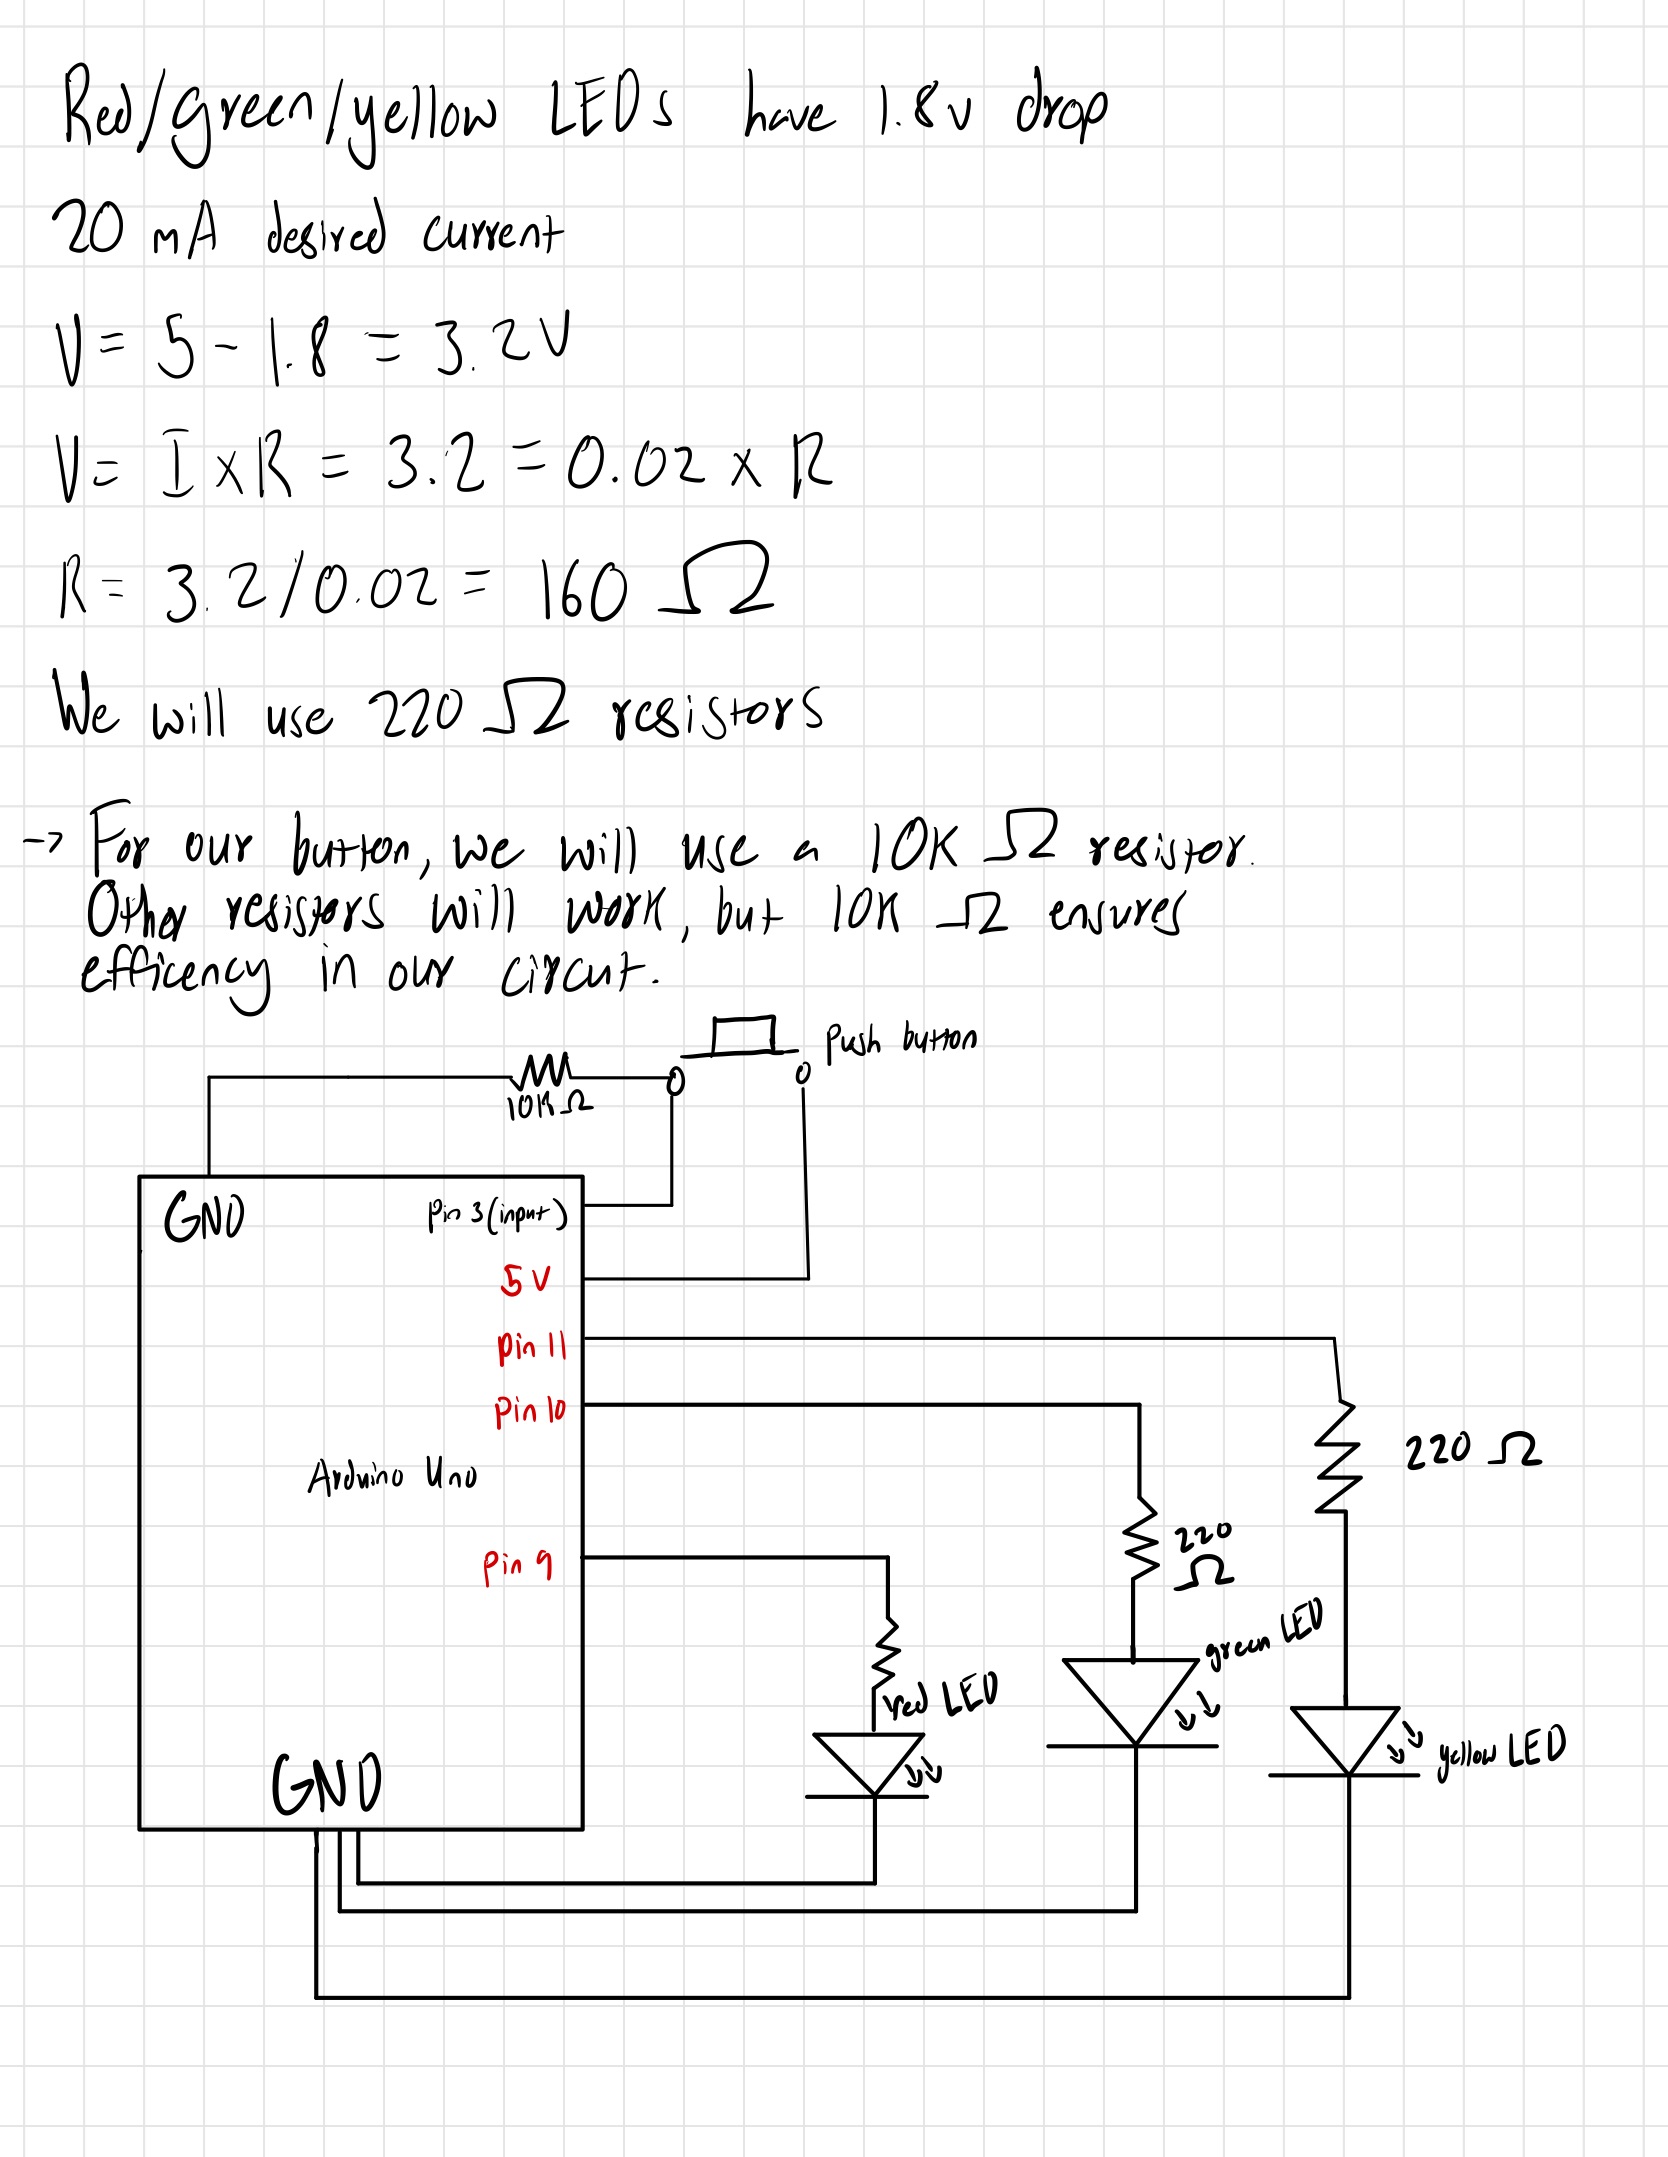 Red/green/yellow LEDs have 1.8v drop
20 mA desired current
V = 5 - 1.8 = 3.2V
V = I x R = 3.2 = 0.02 x R
R = 3.2/0.02 = 160 Ω
We will use 220 Ω resistors
-> For our button, we will use a 10K Ω resistor.
Other resistors will work, but 10K Ω ensures
efficency in our circut.
Push button
10K Ω
GND
Pin 3 (input)
5V
Pin 11
Pin 10
220 Ω
Arduino Uno
220
Ω
Pin 9
green LED
red LED
yellow LED
GND